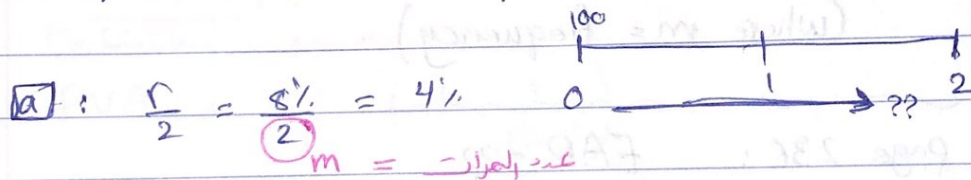 100
[a] : r/2 = 8%/2 = 4% 0 1 2 ??
m = عدد المرات